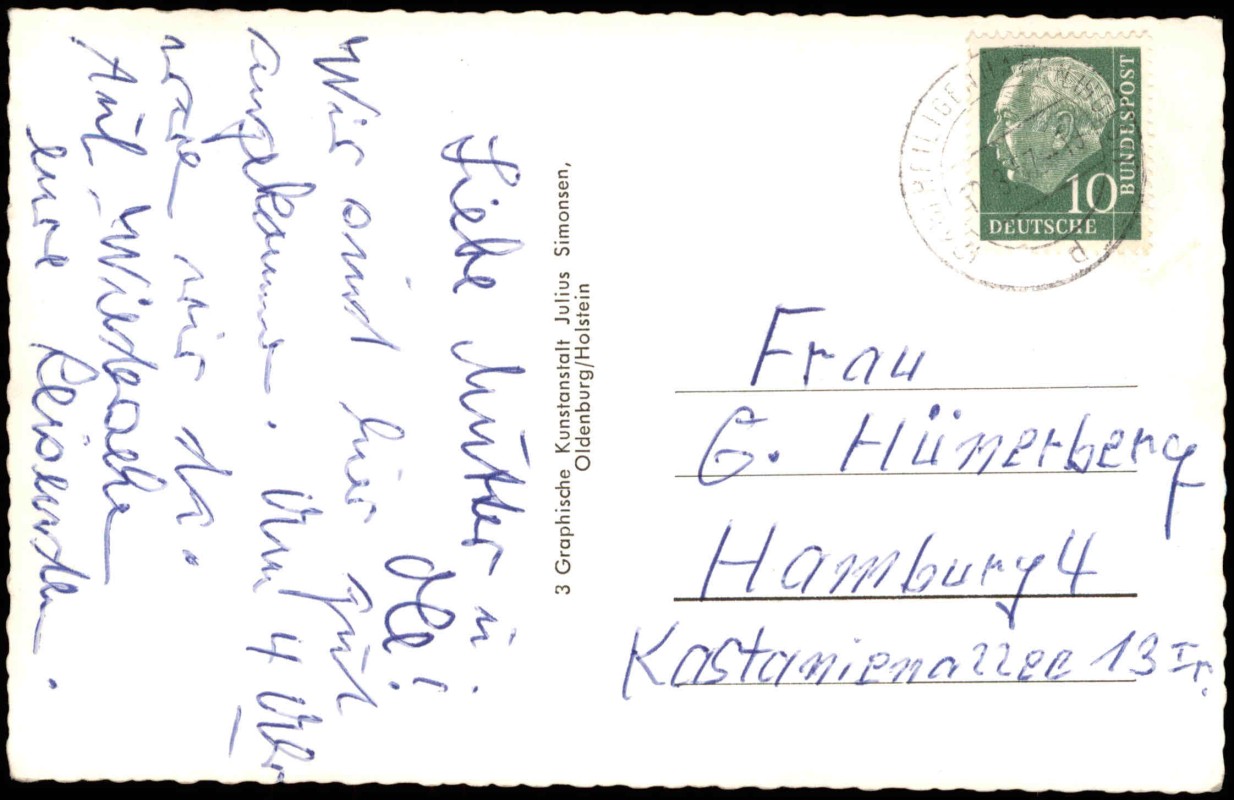 Liebe Mutter u.
Ole!
Wir sind hier gut
angekommen. Um 4 Uhr
waren wir da.
Auf Wiedersehen
eure Reisenden.
3 Graphische Kunstanstalt Julius Simonsen,
Oldenburg/Holstein
HEILIGENHAFEN (HOLST)
10
DEUTSCHE
BUNDESPOST
Frau
G. Hünerberg
Hamburg 4
Kastanienallee 13 Ir.